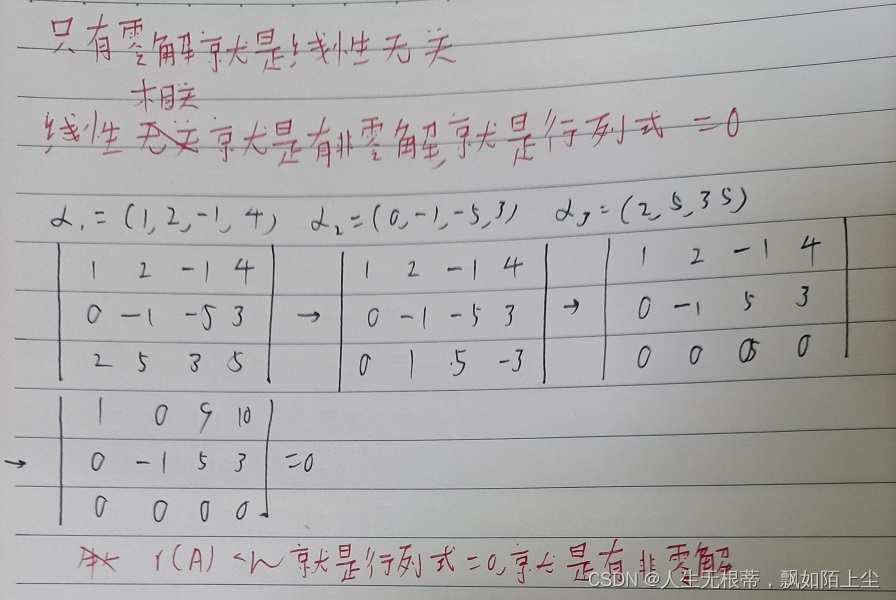 只有零解就是线性无关
相关
线性无关就是有非零解,就是行列式=0
α₁=(1,2,-1,4) α₂=(0,-1,-5,3) α₃=(2,5,3 5)
1 2 -1 4 1 2 -1 4 1 2 -1 4
0 -1 -5 3 → 0 -1 -5 3 → 0 -1 5 3
2 5 3 5 0 1 5 -3 0 0 0 0
1 0 9 10
→ 0 -1 5 3 =0
0 0 0 0
r(A)<n 就是行列式=0,就是有非零解
CSDN @人生无根蒂,飘如陌上尘